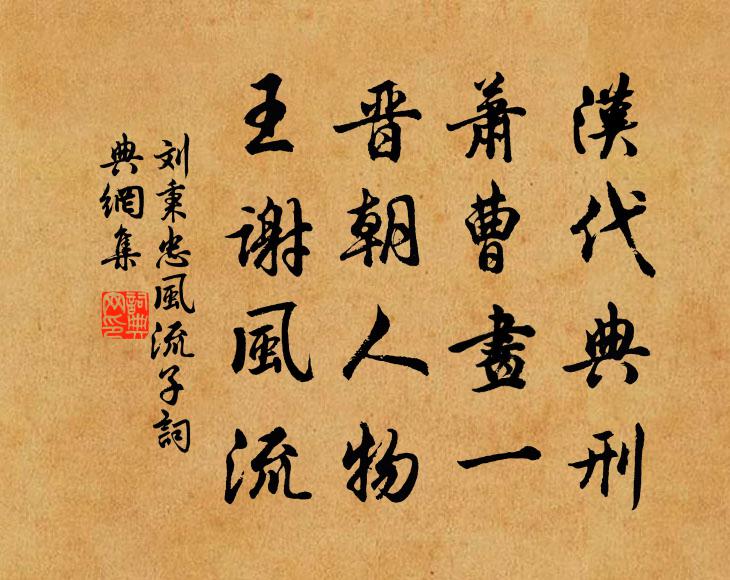 漢代典刑
蕭曹畫一
晋朝人物
王謝風流
刘秉忠風流子詞
典網集
詞典網印